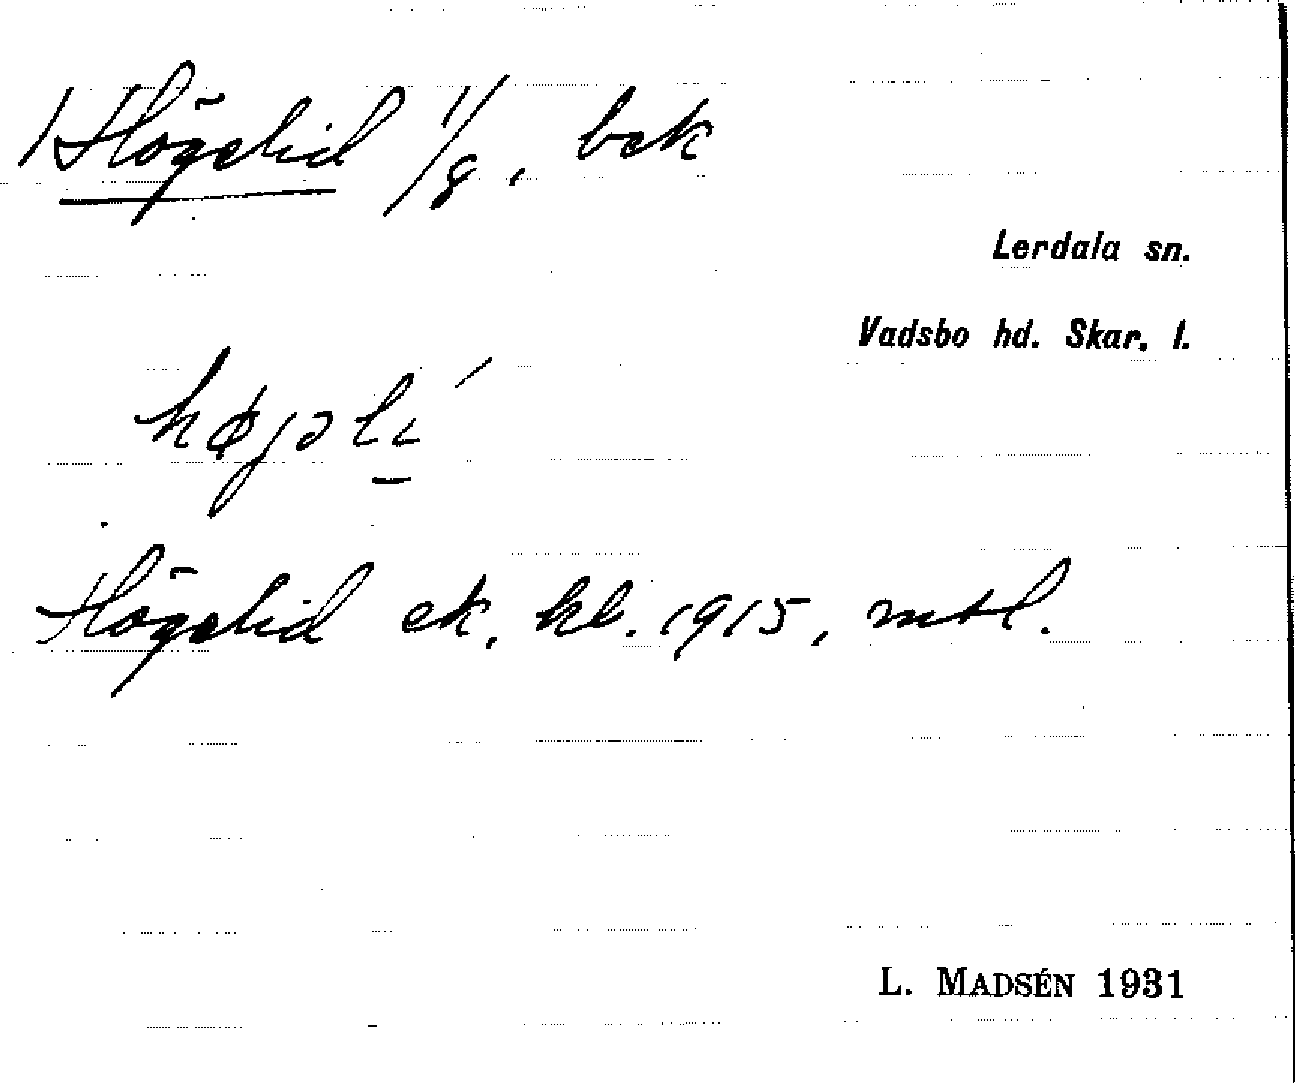 Högelid 1/8, bek
Lerdala sn.
Vadsbo hd. Skar. l.
højəlí
Högelid ek. kl. 1915, mtl.
L. MADSÉN 1931